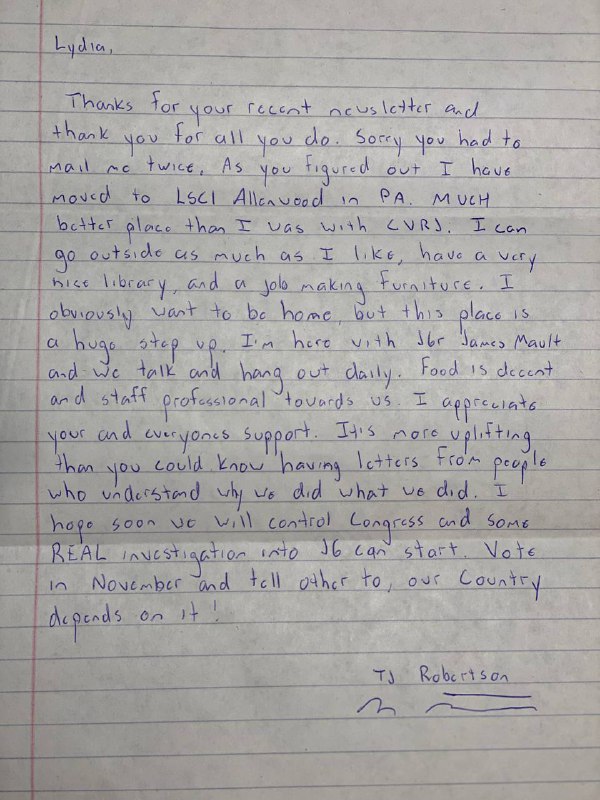 Lydia,
Thanks for your recent newsletter and
thank you for all you do. Sorry you had to
mail me twice. As you figured out I have
moved to LSCI Allenwood in PA. MUCH
better place than I was with CVRJ. I can
go outside as much as I like, have a very
nice library, and a job making furniture. I
obviously want to be home, but this place is
a huge step up. I'm here with J6r James Mault
and we talk and hang out daily. Food is decent
and staff professional towards us. I appreciate
your and everyones support. It is more uplifting
than you could know having letters from people
who understand why we did what we did. I
hope soon we will control Congress and some
REAL investigation into J6 can start. Vote
in November and tell other to, our Country
depends on it!
TJ Robertson